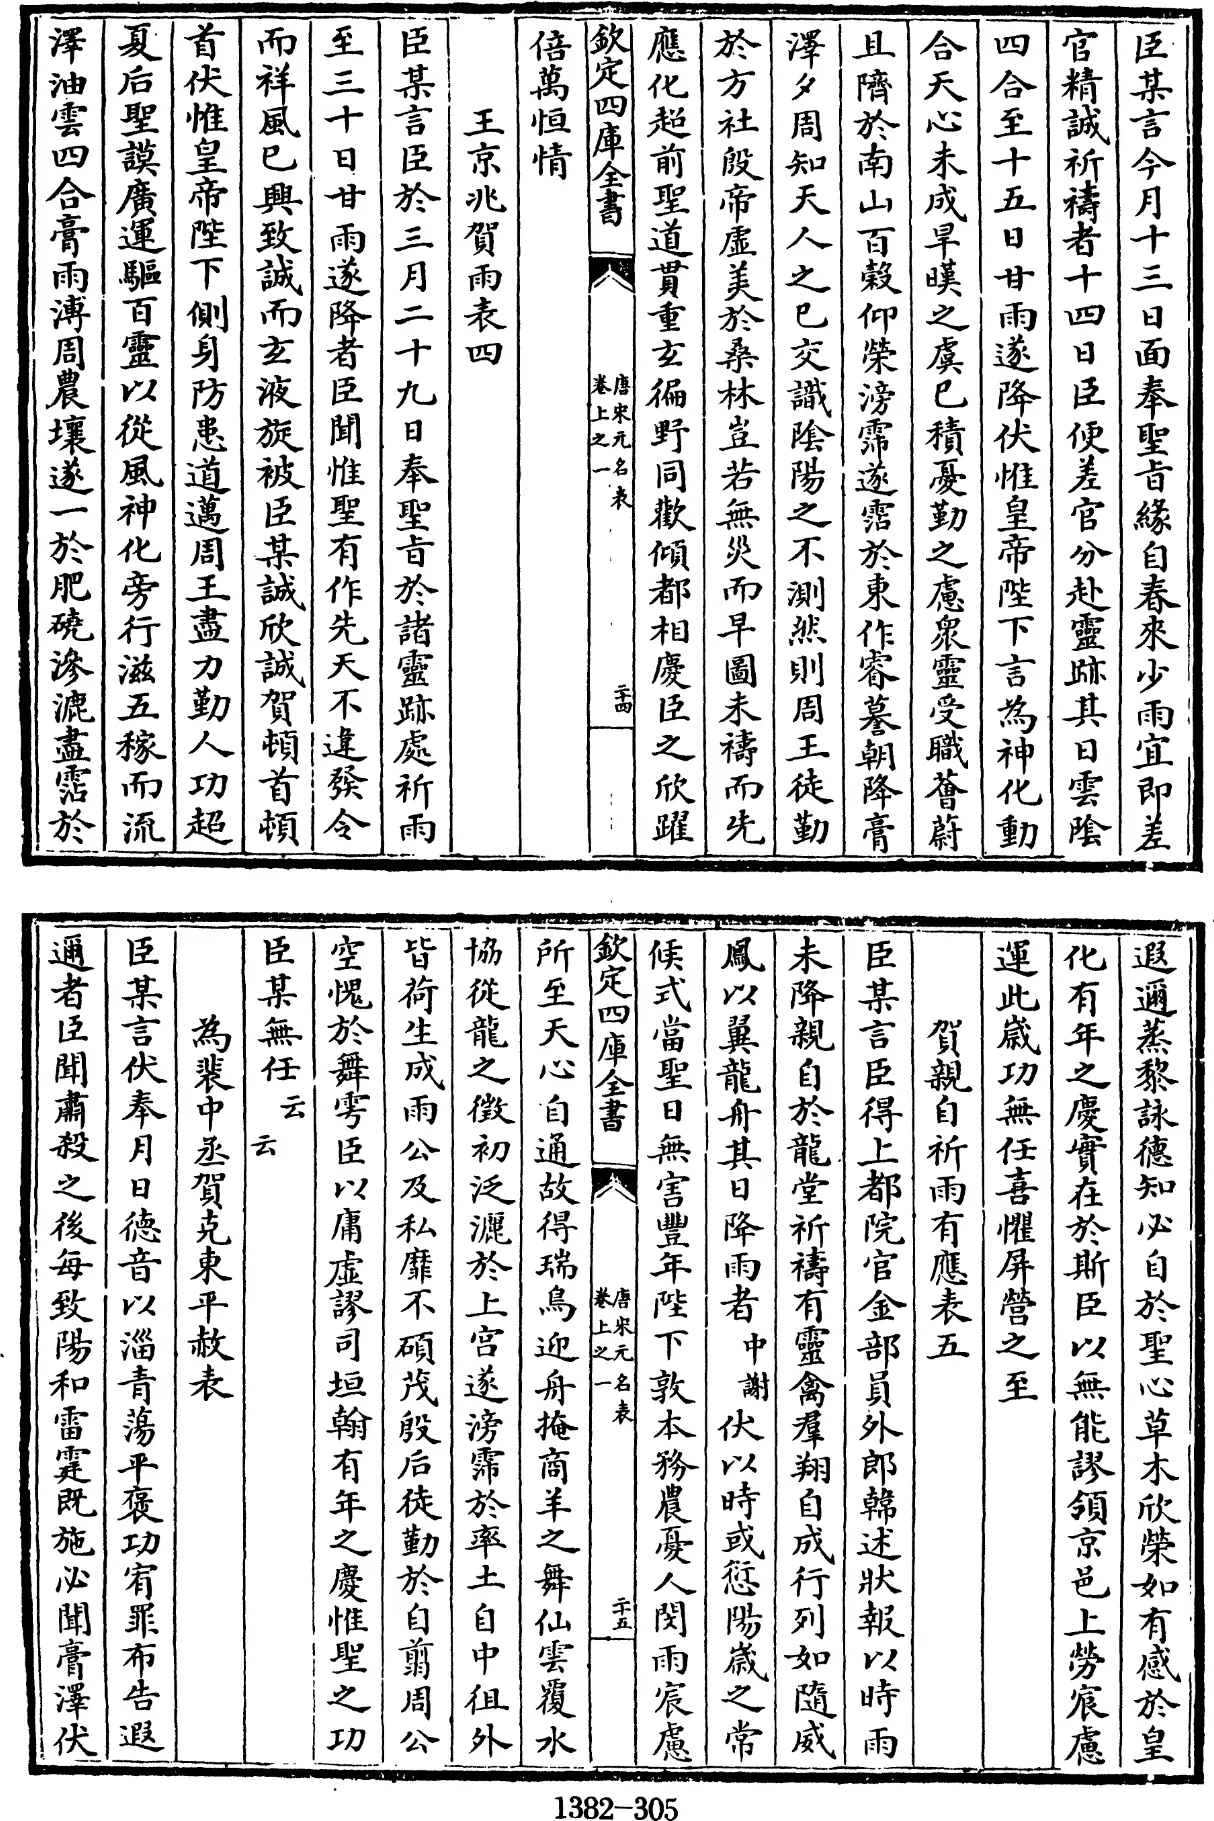 臣某言今月十三日面奉聖旨緣自春來少雨宜即差
官精誠祈禱者十四日臣便差官分赴靈跡其日雲陰
四合至十五日甘雨遂降伏惟皇帝陛下言為神化動
合天心未成旱暵之虞已積憂勤之慮衆靈受職薈蔚
且隮於南山百穀仰榮滂霈遂霑於東作睿蓦朝降膏
澤夕周知天人之已交識陰陽之不測然則周王徒勤
於方社殷帝虛美於桑林豈若無災而早圖未禱而先
應化超前聖道貫重玄徧野同歡傾都相慶臣之欣躍
欽定四庫全書
唐宋元名表
卷上之一
二十四
倍萬恒情
王京兆賀雨表四
臣某言臣於三月二十九日奉聖旨於諸靈跡處祈雨
至三十日甘雨遂降者臣聞惟聖有作先天不違發令
而祥風已興致誠而玄液旋被臣某誠欣誠賀頓首頓
首伏惟皇帝陛下側身防患道邁周王盡力勤人功超
夏后聖謨廣運驅百靈以從風神化旁行滋五稼而流
澤油雲四合膏雨溥周農壤遂一於肥磽滲漉盡霑於
遐邇蒸黎詠德知必自於聖心草木欣榮如有感於皇
化有年之慶實在於斯臣以無能謬領京邑上勞宸慮
運此歲功無任喜懼屏營之至
賀親自祈雨有應表五
臣某言臣得上都院官金部員外郎韓述狀報以時雨
未降親自於龍堂祈禱有靈禽羣翔自成行列如隨威
鳳以翼龍舟其日降雨者中謝伏以時或愆陽歲之常
候式當聖日無害豐年陛下敦本務農憂人閔雨宸慮
欽定四庫全書
唐宋元名表
卷上之一
二十五
所至天心自通故得瑞鳥迎舟掩商羊之舞仙雲覆水
協從龍之徵初泛灑於上宫遂滂霈於率土自中徂外
皆荷生成雨公及私靡不碩茂殷后徒勤於自翦周公
空愧於舞雩臣以庸虛謬司垣翰有年之慶惟聖之功
臣某無任云云
為裴中丞賀克東平赦表
臣某言伏奉月日德音以淄青蕩平褒功宥罪布告遐
邇者臣聞肅殺之後每致陽和雷霆既施必聞膏澤伏
1382-305